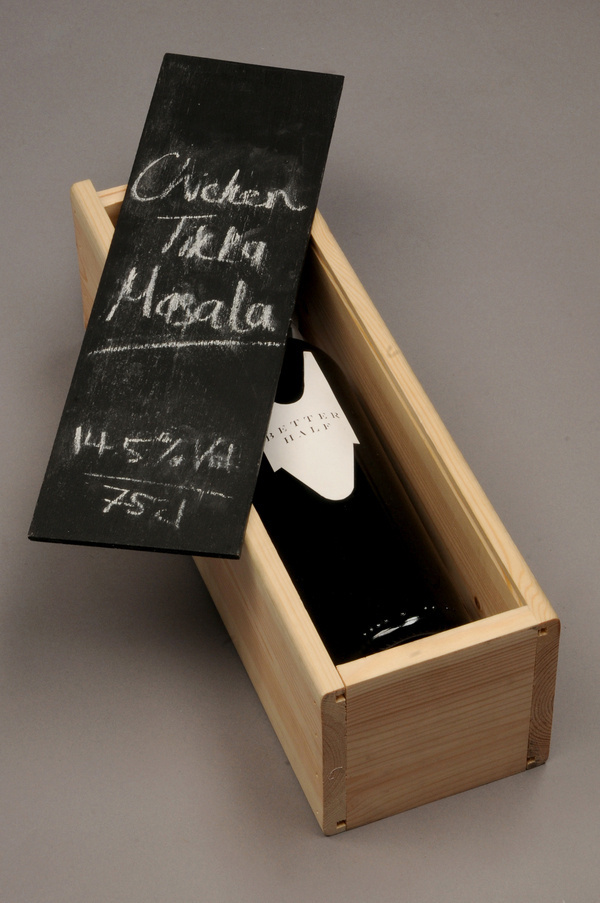 Chicken
Tikka
Masala
14.5% Vol
75cl
BETTER
HALF